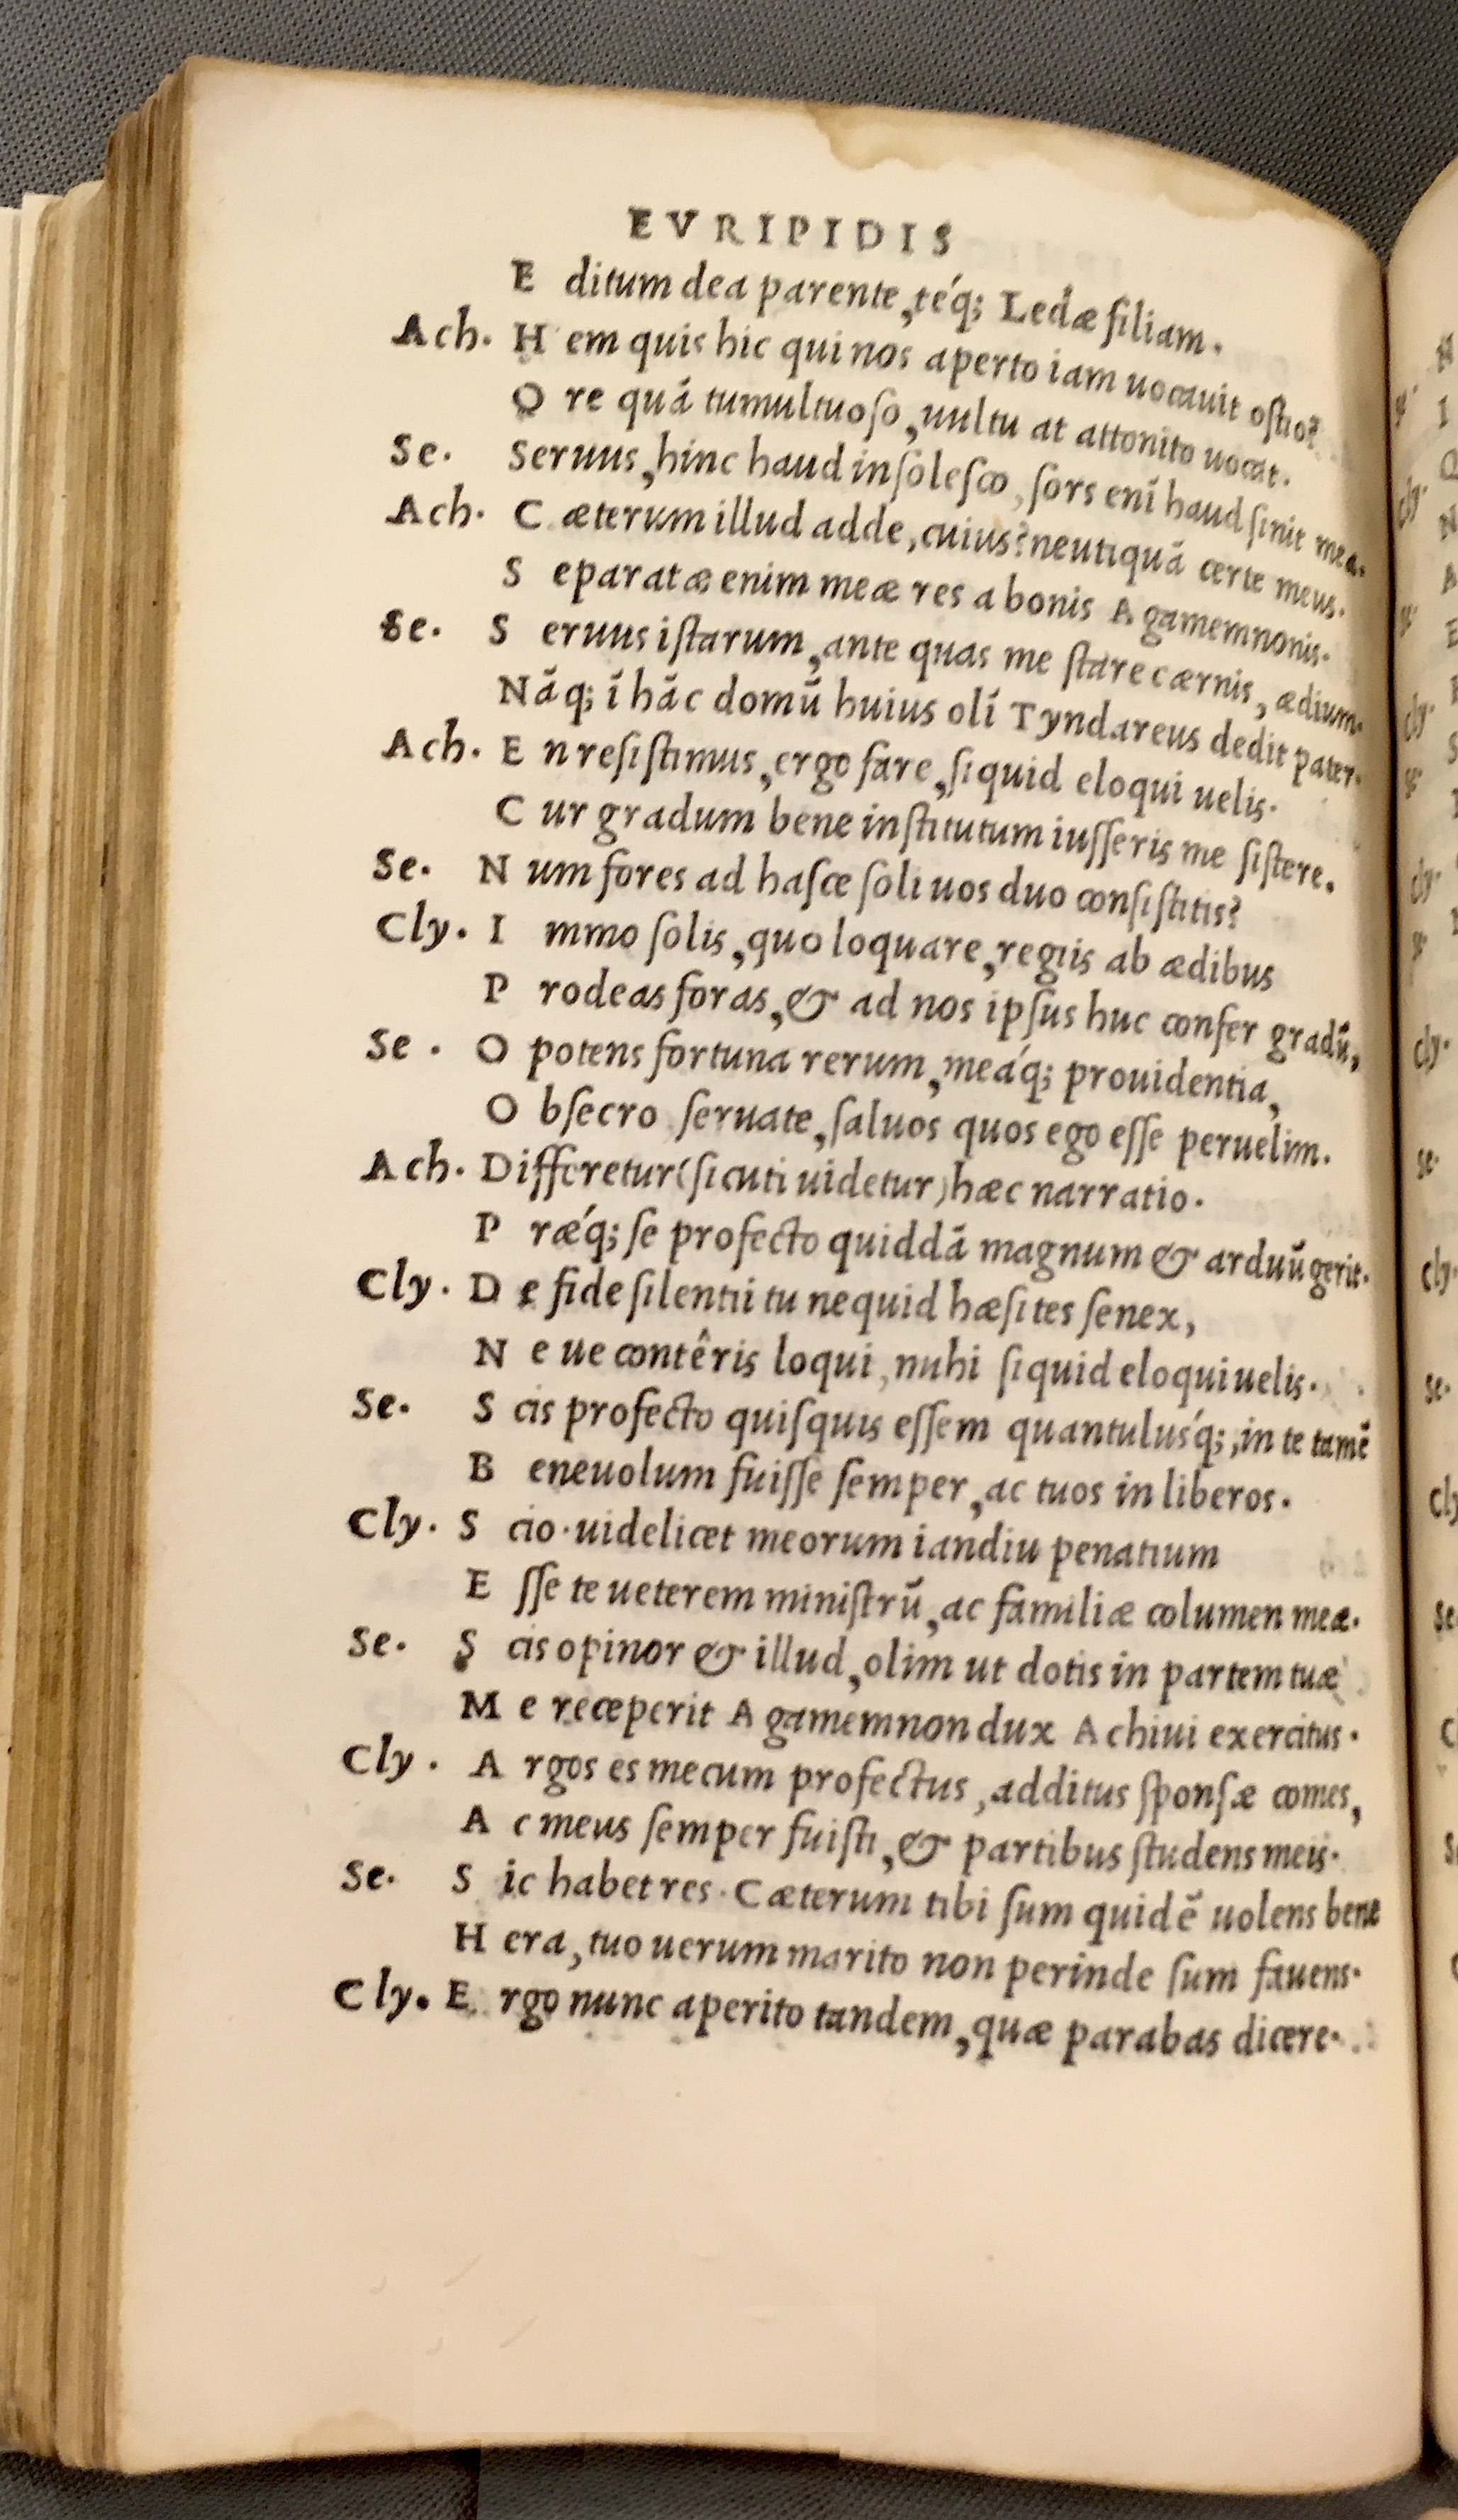 EVRIPIDIS
E ditum dea parente, téq; Ledæ filiam.
Ach. H em quis hic qui nos aperto iam uocauit ostio?
O re quã tumultuoso, uultu at attonito uocat.
Se. Seruus, hinc haud insolesco, sors enĩ haud sinit mea.
Ach. C æterum illud adde, cuius? neutiquã certe meus.
S eparatæ enim meæ res a bonis Agamemnonis.
Se. S eruus istarum, ante quas me stare cærnis, ædium.
Nãq; ĩ hãc domũ huius olĩ Tyndareus dedit pater.
Ach. E n resistimus, ergo fare, si quid eloqui uelis.
C ur gradum bene institutum iusseris me sistere.
Se. N um fores ad hasce soli uos duo consistitis?
Cly. I mmo solis, quo loquare, regiis ab ædibus
P rodeas foras, & ad nos ipsus huc confer gradũ,
Se. O potens fortuna rerum, meáq; prouidentia,
O bsecro seruate, saluos quos ego esse peruelim.
Ach. Differetur (sicuti uidetur) hæc narratio.
P rǽq; se profecto quiddã magnum & arduũ gerit.
Cly. D e fide silentii tu nequid hæsites senex,
N e ue contêris loqui, mihi siquid eloqui uelis.
Se. S cis profecto quisquis essem quantuluśq;, in te tamẽ
B eneuolum fuisse semper, ac tuos in liberos.
Cly. S cio. uidelicet meorum iandiu penatium
E sse te ueterem ministrũ, ac familiæ columen meæ.
Se. S cis opinor & illud, olim ut dotis in partem tuæ
M e receperit Agamemnon dux Achiui exercitus.
Cly. A rgos es mecum profectus, additus sponsæ comes,
A c meus semper fuisti, & partibus studens meis.
Se. S ic habet res. Cæterum tibi sum quidẽ uolens bene
H era, tuo uerum marito non perinde sum fauens.
Cly. E rgo nunc aperito tandem, quæ parabas dicere.